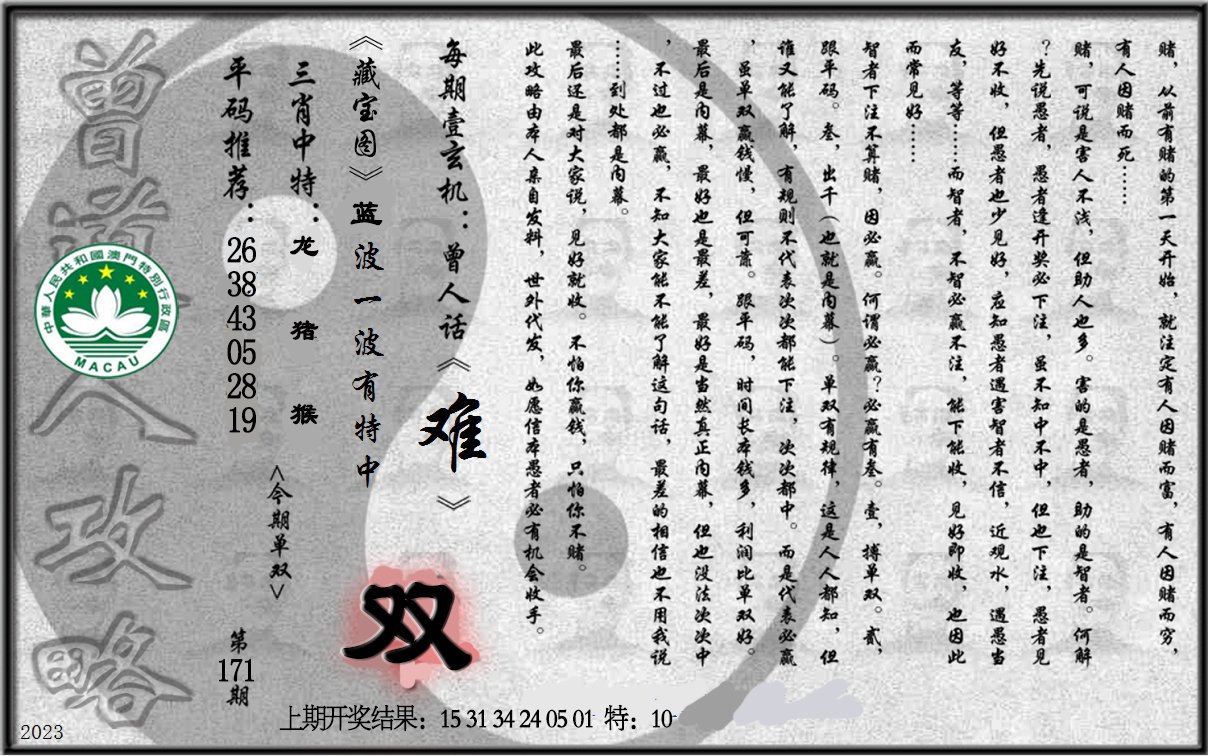 赌，从前有赌的第一天开始，就注定有人因赌而富，有人因赌而穷，
有人因赌而死……
赌，可说是害人不浅，但助人也多。害的是愚者，助的是智者。何解
？先说愚者，愚者逢开奖必下注，虽不知中不中，但也下注，愚者见
好不收，但愚者也少见好，应知愚者遇害智者不信，近观水，遇愚当
友，等等……而智者，不智必赢不注，能下能收，见好即收，也因此
而常见好……
智者下注不算赌，因必赢。何谓必赢？必赢有叁。壹，搏单双。贰，
跟平码。叁，出千（也就是内幕）。单双有规律，这是人人都知，但
谁又能了解，有规则不代表次次都能下注，次次都中。而是代表必赢
，虽单双赢钱慢，但可靠。跟平码，时间长本钱多，利润比单双好。
最后是内幕，最好也是最差，最好是当然真正内幕，但也没法次次中
，不过也必赢，不知大家能不能了解这句话，最差的相信也不用我说
……到处都是内幕。
最后还是对大家说，见好就收。不怕你赢钱，只怕你不赌。
此攻略由本人亲自发料，世外代发，如愿信本愚者必有机会收手。
每期壹玄机：曾人话《难》
《藏宝图》蓝波一波有特中
双
三肖中特：龙 猪 猴
<今期单双>
平码推荐：26 38 43 05 28 19
第171期
曾道人攻略
中華人民共和國澳門特別行政區
MACAU
上期开奖结果：15 31 34 24 05 01 特：10
2023